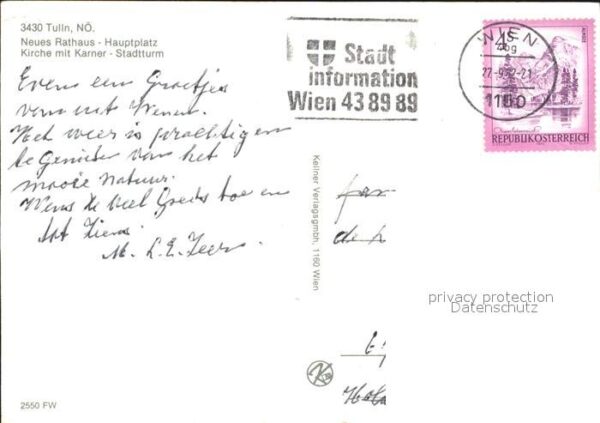 3430 Tulln, NÖ.
Neues Rathaus - Hauptplatz
Kirche mit Karner - Stadtturm
Evens een Groetjes
vanuit Wenen.
Het weer is prachtig en
te Genieten van het
mooie Natuur.
Wens U veel Goeds toe en
tot Ziens.
M. L. E.
2550 FW
Stadt
information
Wien 43 89 89
WIEN
27-9
-21
1150
S 4
ALMSEE
REPUBLIK ÖSTERREICH
Kellner Verlagsgmbh, 1160 Wien
fam
de
privacy protection
Datenschutz
K